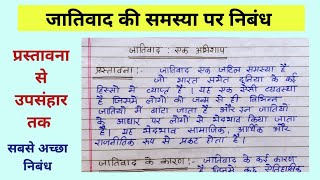 जातिवाद की समस्या पर निबंध
प्रस्तावना
से
उपसंहार
तक
सबसे अच्छा
निबंध
जातिवाद : एक अभिशाप
प्रस्तावना :- जातिवाद एक जटिल समस्या है
जो भारत समेत दुनिया के कई
हिस्सों में व्याप्त है। यह एक ऐसी व्यवस्था
है जिसमें लोगों को जन्म से ही विभिन्न
जातियों में बांटा जाता है और इन जातियों
के आधार पर लोगों से भेदभाव किया जाता
है। यह भेदभाव सामाजिक, आर्थिक और
राजनीतिक रूप से प्रकट होता है।
जातिवाद के कारण :- जातिवाद के कई कारण